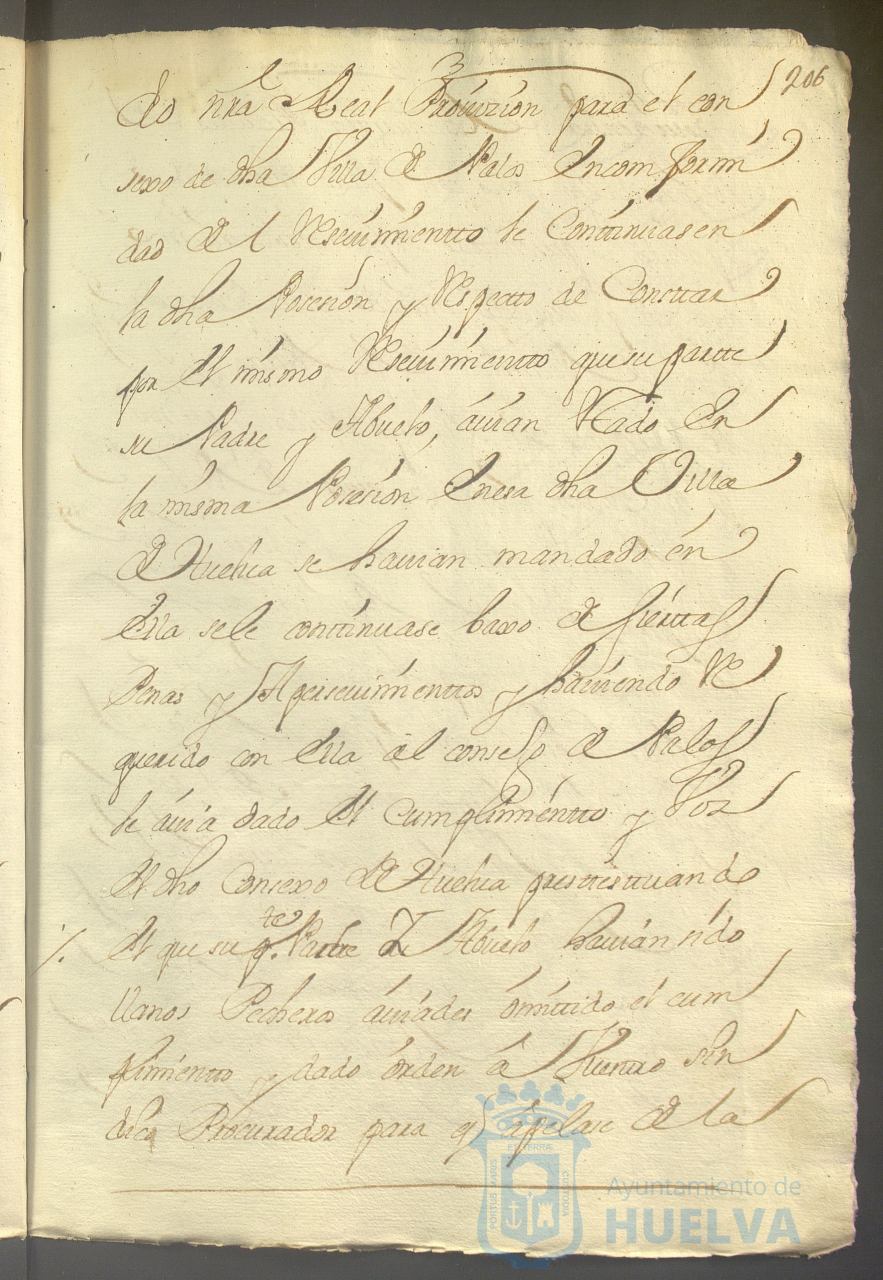 206
do nra Real Provizion para el con
sexo de dha Villa de Palos en comformi
dad de el Reseuimientto le Continuasen
la dha Posesion y Respectto de Consttar
por el mismo Reseuimientto que su partte
su Padre y Abuelo, auian estado En
la misma Posesion Enesa dha Villa
de Huelua se hauian mandado en
Ella sele continuase baxo de siertas
Penas y Apersevimienttos y haviendo Re
querido con Ella al consejo de Palos
le auia dado el Cumplimientto y Vos
el dho Consexo de Huelua
el que su pte. Padre y Abuelo hauian sido
llanos Pecheros omittido el cum
plimientto y dado orden á Vuestro Sin
dico Procurador para q apelase de la
PORTUS MARIS
ET TERRÆ
CUSTODIA
Ayuntamiento de
HUELVA